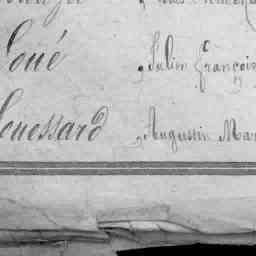 Coué Julin François
Couessard Augustin Mar